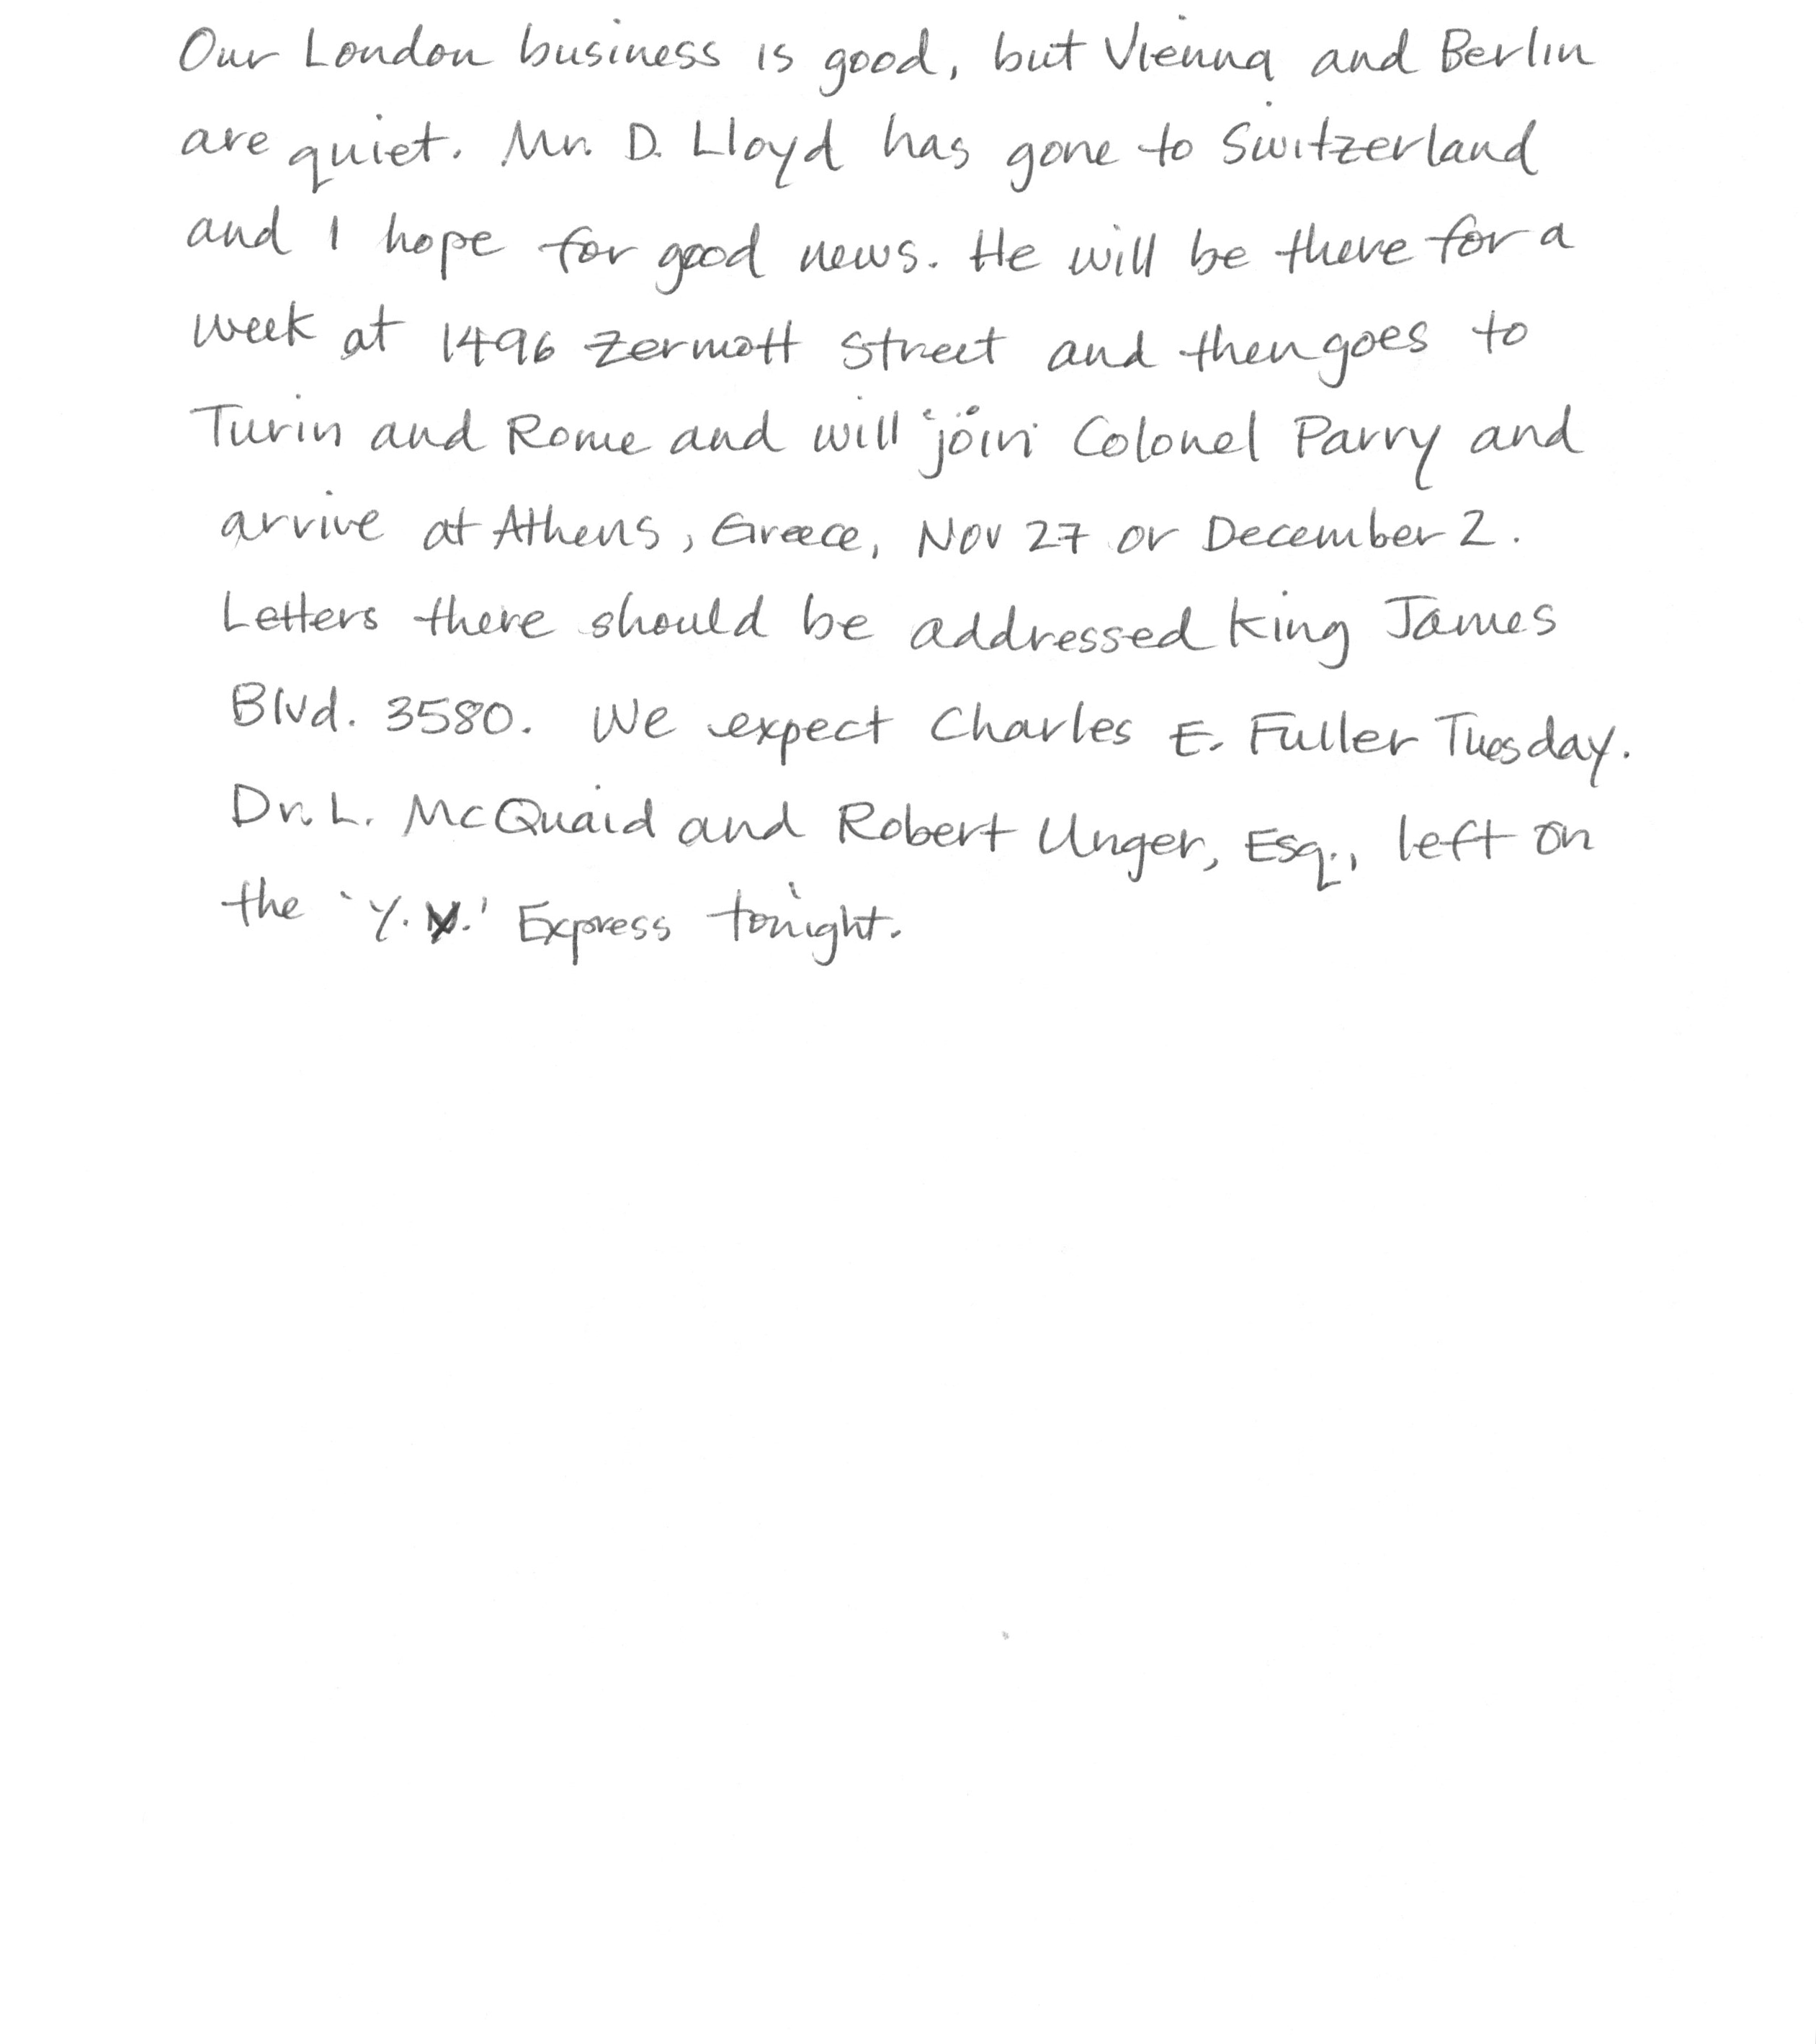 Our London business is good, but Vienna and Berlin
are quiet. Mr. D. Lloyd has gone to Switzerland
and I hope for good news. He will be there for a
week at 1496 Zermott Street and then goes to
Turin and Rome and will join Colonel Parry and
arrive at Athens, Greece, Nov 27 or December 2.
Letters there should be addressed King James
Blvd. 3580. We expect Charles E. Fuller Tuesday.
Dr. L. McQuaid and Robert Unger, Esq., left on
the 'Y. .' Express tonight.